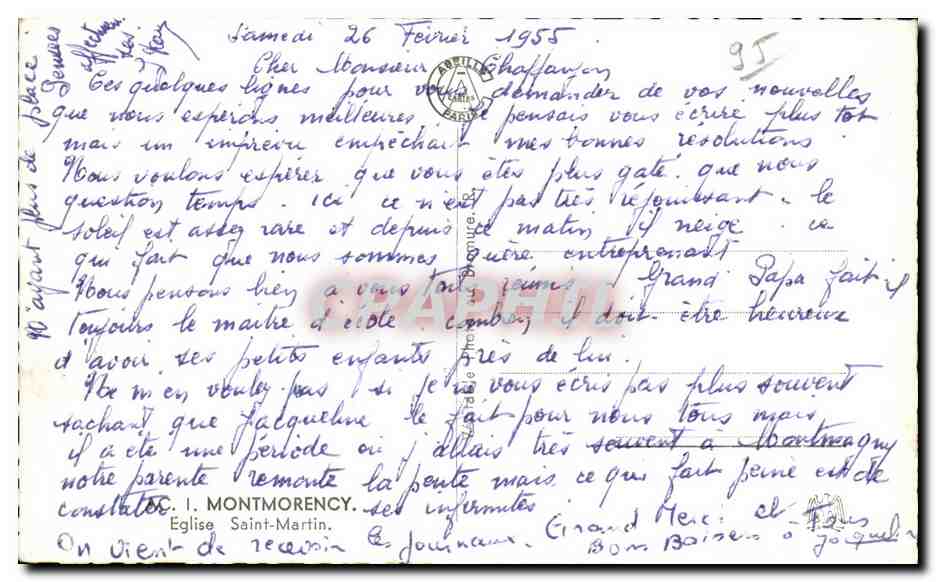 Samedi 26 Février 1955.
95
Cher Monsieur Chaffanjon
Ces quelques lignes pour vous demander de vos nouvelles
que nous espérons meilleures. Je pensais vous écrire plus tot
mais un imprévu empêchait mes bonnes résolutions.
Nous voulons espérer que vous êtes plus gaté que nous
question temps. Ici ce n'est pas très réjouissant. le
soleil est assez rare et depuis ce matin il neige. ce
qui fait que nous sommes guère entreprenant
Nous pensons bien à vous tous réunis. Grand Papa fait il
toujours le maitre d'école combien il doit être heureux
d'avoir ses petits enfants près de lui.
Ne m'en voulez pas si je ne vous écris pas plus souvent
sachant que Jacqueline le fait pour nous tous mais
il a été une période où j'allais très souvent à Montmagny
notre parente remonte la pente mais ce qui fait peine est de
constater ses infirmités.
On vient de recevoir les journaux. Grand Merci et
Bons Baisers à Tous
Jacqueline
N'ayant plus de place
Pensées
ABEILLE
CARTES
PARIS
Véritable Photo au Bromure
CPAPHIL
A.C. 1. MONTMORENCY.
Eglise Saint-Martin.